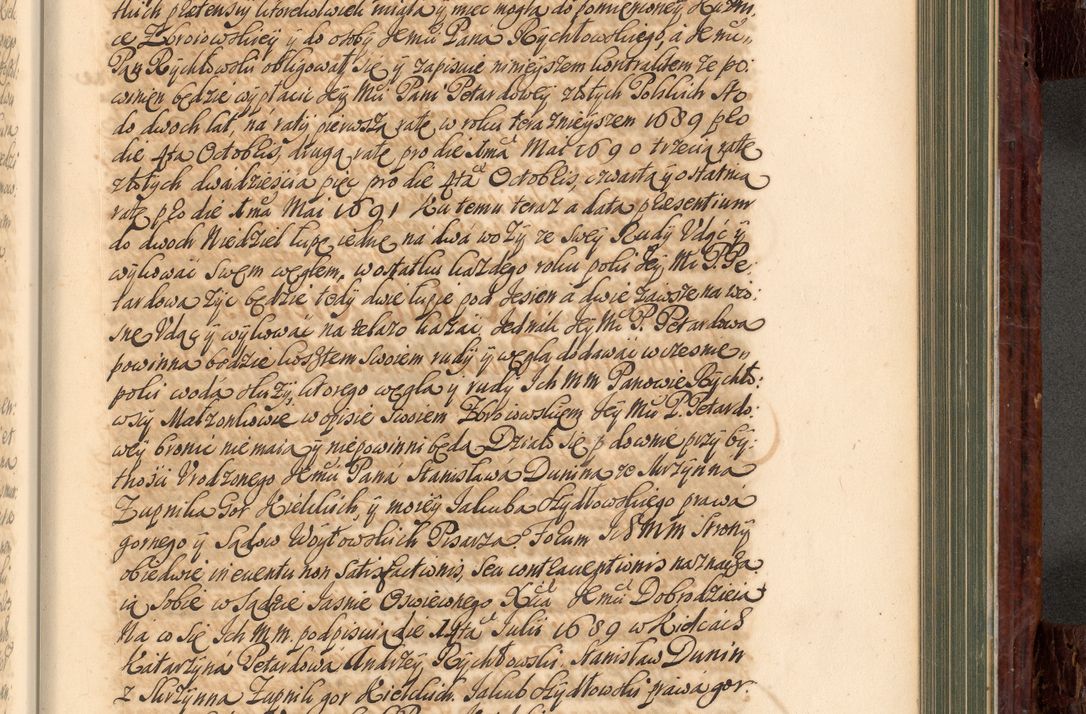 tkich pretensiy ktorekolwiek miała y miec mogła do pomienioney Kuźni
ce Zbroiowskiey y do osoby Jemu Pana Rychłowskiego, a Jemu
Pan Rychłowski obligował się y zapisuie ninieyszem kontraktem że po
winien będzie wypłacic Jey Mci Pani Petardowey złotych Polskich sto
do dwoch lat, na raty pierwszą ratę w roku teraznieyszem 1689 pro
die 4ta Octobris, drugą ratę pro die 1ma Mai 1690 trzecią ratę
złotych dwadzieścia pięc pro die 4ta Octobris, czwartą y ostatnią
ratę pro die 1ma Mai 1691 Ku temu teraz a data præsentium
do dwoch Niedziel kupę iednę na dwa wozy ze swey Rudy Vdać y
wykować swem węglem, w ostatku każdego roku poki Jey Mć P. Pe:
tardowa żyć będzie tedy dwie kupie pod Jesien a dwie zawsze na wio:
snę Vdać y wykować na żelazo kazać, Jednak Jey Mć P. Petardowa
powinna będzie kosztem swoiem rudy y węgla dodawać wczesnie
poki woda służy, ktorego węgla y rudy Ich MM Panowie Rychło:
wscy Małzonkowie w opisie swoiem Zbroiowskiem Jey Mci P. Petardo:
wey bronić nie maią y niepowinni będą Działo się p downie przy by:
tności Vrodzonego Jemu Pana Stanisława Dunina ze Skrzynna
Zupnika Gor Kielckich, y moiey Jakuba Szydłowskiego prawa
gornego y Sądow Woytowskich Pisarza. Forum Ich MM Strony
obiedwie in eventu non satisfactionis, seu contrauentionis naznacza
ią sobie w Sądzie Jasnie Oswieconego Xcia Jemu Dobrodzieia
Na co się Ich M.M. podpisuią die 14ta Julii 1689 w Kielcach
Katarzyna Petardowa Andrzey Rychłowski. Stanisław Dunin
z Skrzynna Zupnik gor Kielckich. Jakub Szydłowski prawa gor.